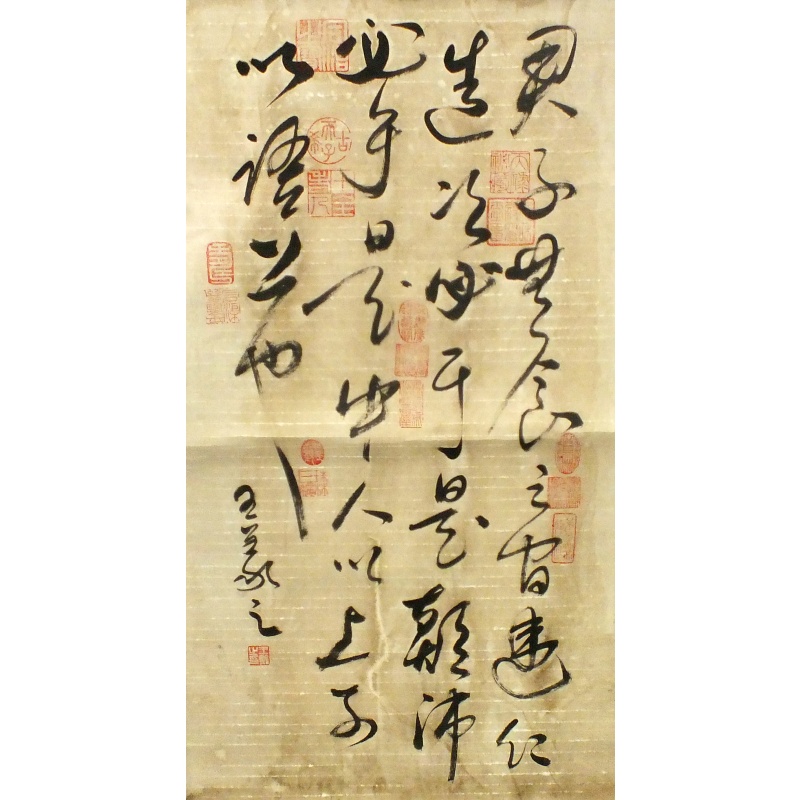 君子無食之間違仁
造次必于是顛沛
必于是中人以上可
以語上也
王羲之